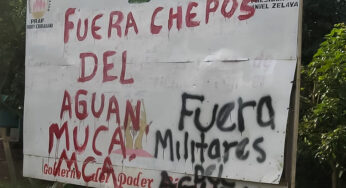 FUERA CHEPOS
DEL
AGUAN
MUCA.
MCA
Fuera
Militares
Gobierno del Poder